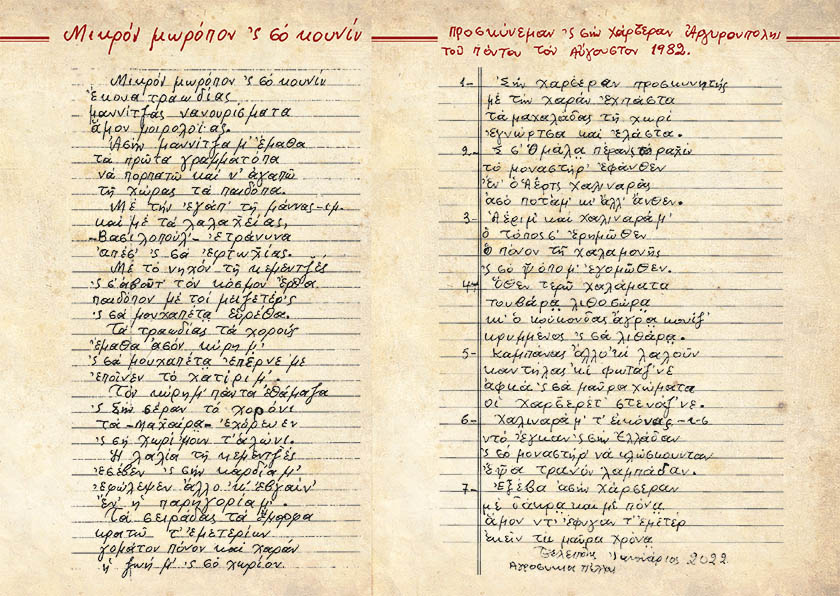 Μικρόν μωρόπον 'ς σό κουνίν
Μικρόν μωρόπον 'ς σό κουνίν
έκουα τραωδίας
μαννίτσας νανουρίσματα
άμον μοιρολοΐας.
Ασήν μαννίτσα μ' έμαθα
τα πρώτα γραμματόπα
να πορπατώ και ν' αγαπώ
τη χώρας τα παιδόπα.
Με την εγάπ' τη μάννας-ι-μ
και με τα λαλαχείας,
-Βασιλοπούλ'- ετράνυνα
απέσ' 'ς σα εφτωχίας.
Με το νηχόν τη κεμεντζές
'ς σ' αβούτ' τον κόσμον έρθα
παιδόπον με τοι μαχετέρ'ς
'ς σα μουχαπέτα ευρέθα.
Τα τραωδίας τα χορούς
έμαθα ασόν κύρη μ'
'ς σα μουχαπέτα επέρνε με
εποίνεν το χατίρι μ'.
Τον κύρη μ' πάντα εθάμαζα
'ς σην σέραν το χορόν ι
τα -μαχαίρα- εχόρευεν
'ς ση χωρί μουν τ' αλώνι.
Η λαλία τη κεμεντζές
εσέβεν 'ς σην καρδία μ'
εφώλεψεν άλλο 'κ' εβγαίν'
έν' η παρηγορία μ'.
Τα σειράδας τα έμορφα
κρατώ τ' εμετερίων
γομάτον πόνον και χαράν
η ζωή μ' 'ς σο χωρίον.
Προσκύνεμαν 'ς σην Χάρσεραν Αργυρουπόλης
του Πόντου τον Αύγουστον 1982.
1- Σην Χάρσεραν προσκυνητής
με την χαράν εχπάστα
τα μαχαλάδας τη χωρί
εγνώρτσα και ελάστα.
2- Σ σ' Ομάλα πέραν σο ραχίν
το μοναστήρ' εφάνθεν
έν' ο Άερτς Χαλιναράς
ασό ποτάμ' κι' άλλ' άνθεν.
3- Αέρι μ' και Χαλιναρά μ'
ο τόπος ι σ' ερημώθεν
ο πόνον τη χαλαμονής
'ς σο ψόπο μ' εγομώθεν.
4- Όθεν τερώ χαλάματα
τουβάρα λιθοσώρα
κι' ο κούκονδας άγρα κονίζ'
κρυμμένος 'ς σα λιθάρα.
5- Καμπάνας άλλο 'κί λαλούν
καντήλας 'κί φωτάζ'νε
αφκά 'ς σα μαύρα χώματα
οι Χαρσερέτ' στενάζ'νε.
6- Χαλιναρά μ' τ' εικόνας-ι-ς
ντο έγκαν 'ς σην Ελλάδαν
'ς σο μοναστήρ' να κλώσκουνταν
έψα τρανόν λαμπάδαν.
7- Εξέβα ασήν Χάρσεραν
με δάκρα και με πόνα
άμον ντ' έφυγαν τ' εμέτερ'
εκείν τα μαύρα χρόνα
Ιανουάριος 2022